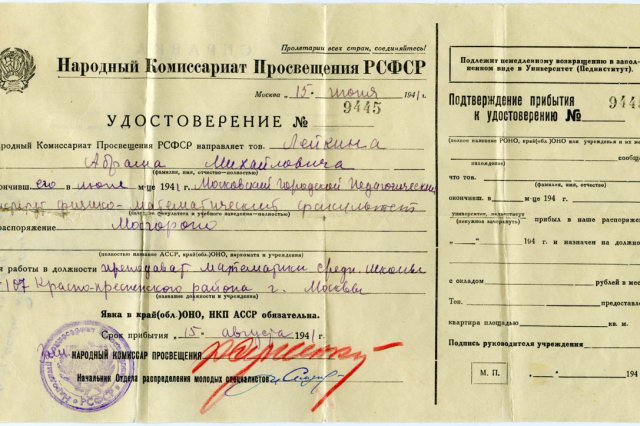 Пролетарии всех стран, соединяйтесь!
Народный Комиссариат Просвещения РСФСР
Москва „15" июня 1941 г.
УДОСТОВЕРЕНИЕ № 9445
Народный Комиссариат Просвещения РСФСР направляет тов. Лейкина
Абрама Михайловича
(фамилия, имя, отчество—полностью)
окончивш. его в июне м-це 1941 г. Московский Городской Педагогический
институт физико-математический факультет
(название факультета и учебного заведения—полностью)
распоряжение Мосгороно
(полностью название АССР, край(обл.)ОНО, наркомата и учреждения)
для работы в должности преподават. математики средн. школы
107 Красно-пресненского района г. Москвы
(название должности и учреждения)
Явка в край(обл.)ОНО, НКП АССР обязательна.
Срок прибытия „15" августа 1941 г.
Зам НАРОДНЫЙ КОМИССАР ПРОСВЕЩЕНИЯ
Начальник Отдела распределения молодых специалистов
РСФСР
Подлежит немедленному возвращению в запол-
ненном виде в Университет (Пединститут).
Подтверждение прибытия
к удостоверению № 9445
(полное название РОНО, край(обл.)ОНО или учреждения и их место-
нахождение)
что тов.
(фамилия, имя, отчество)
окончивш. в м-це 194 г.
университет, пединститут
(ненужное зачеркнуть)
прибыл в наше распоряжение
„ " 194 г. и назначен на должность
с окладом рублей в месяц
Тов. предоставлена
квартира площадью кв. м.
Подпись руководителя учреждения
М. П.
„ " 194